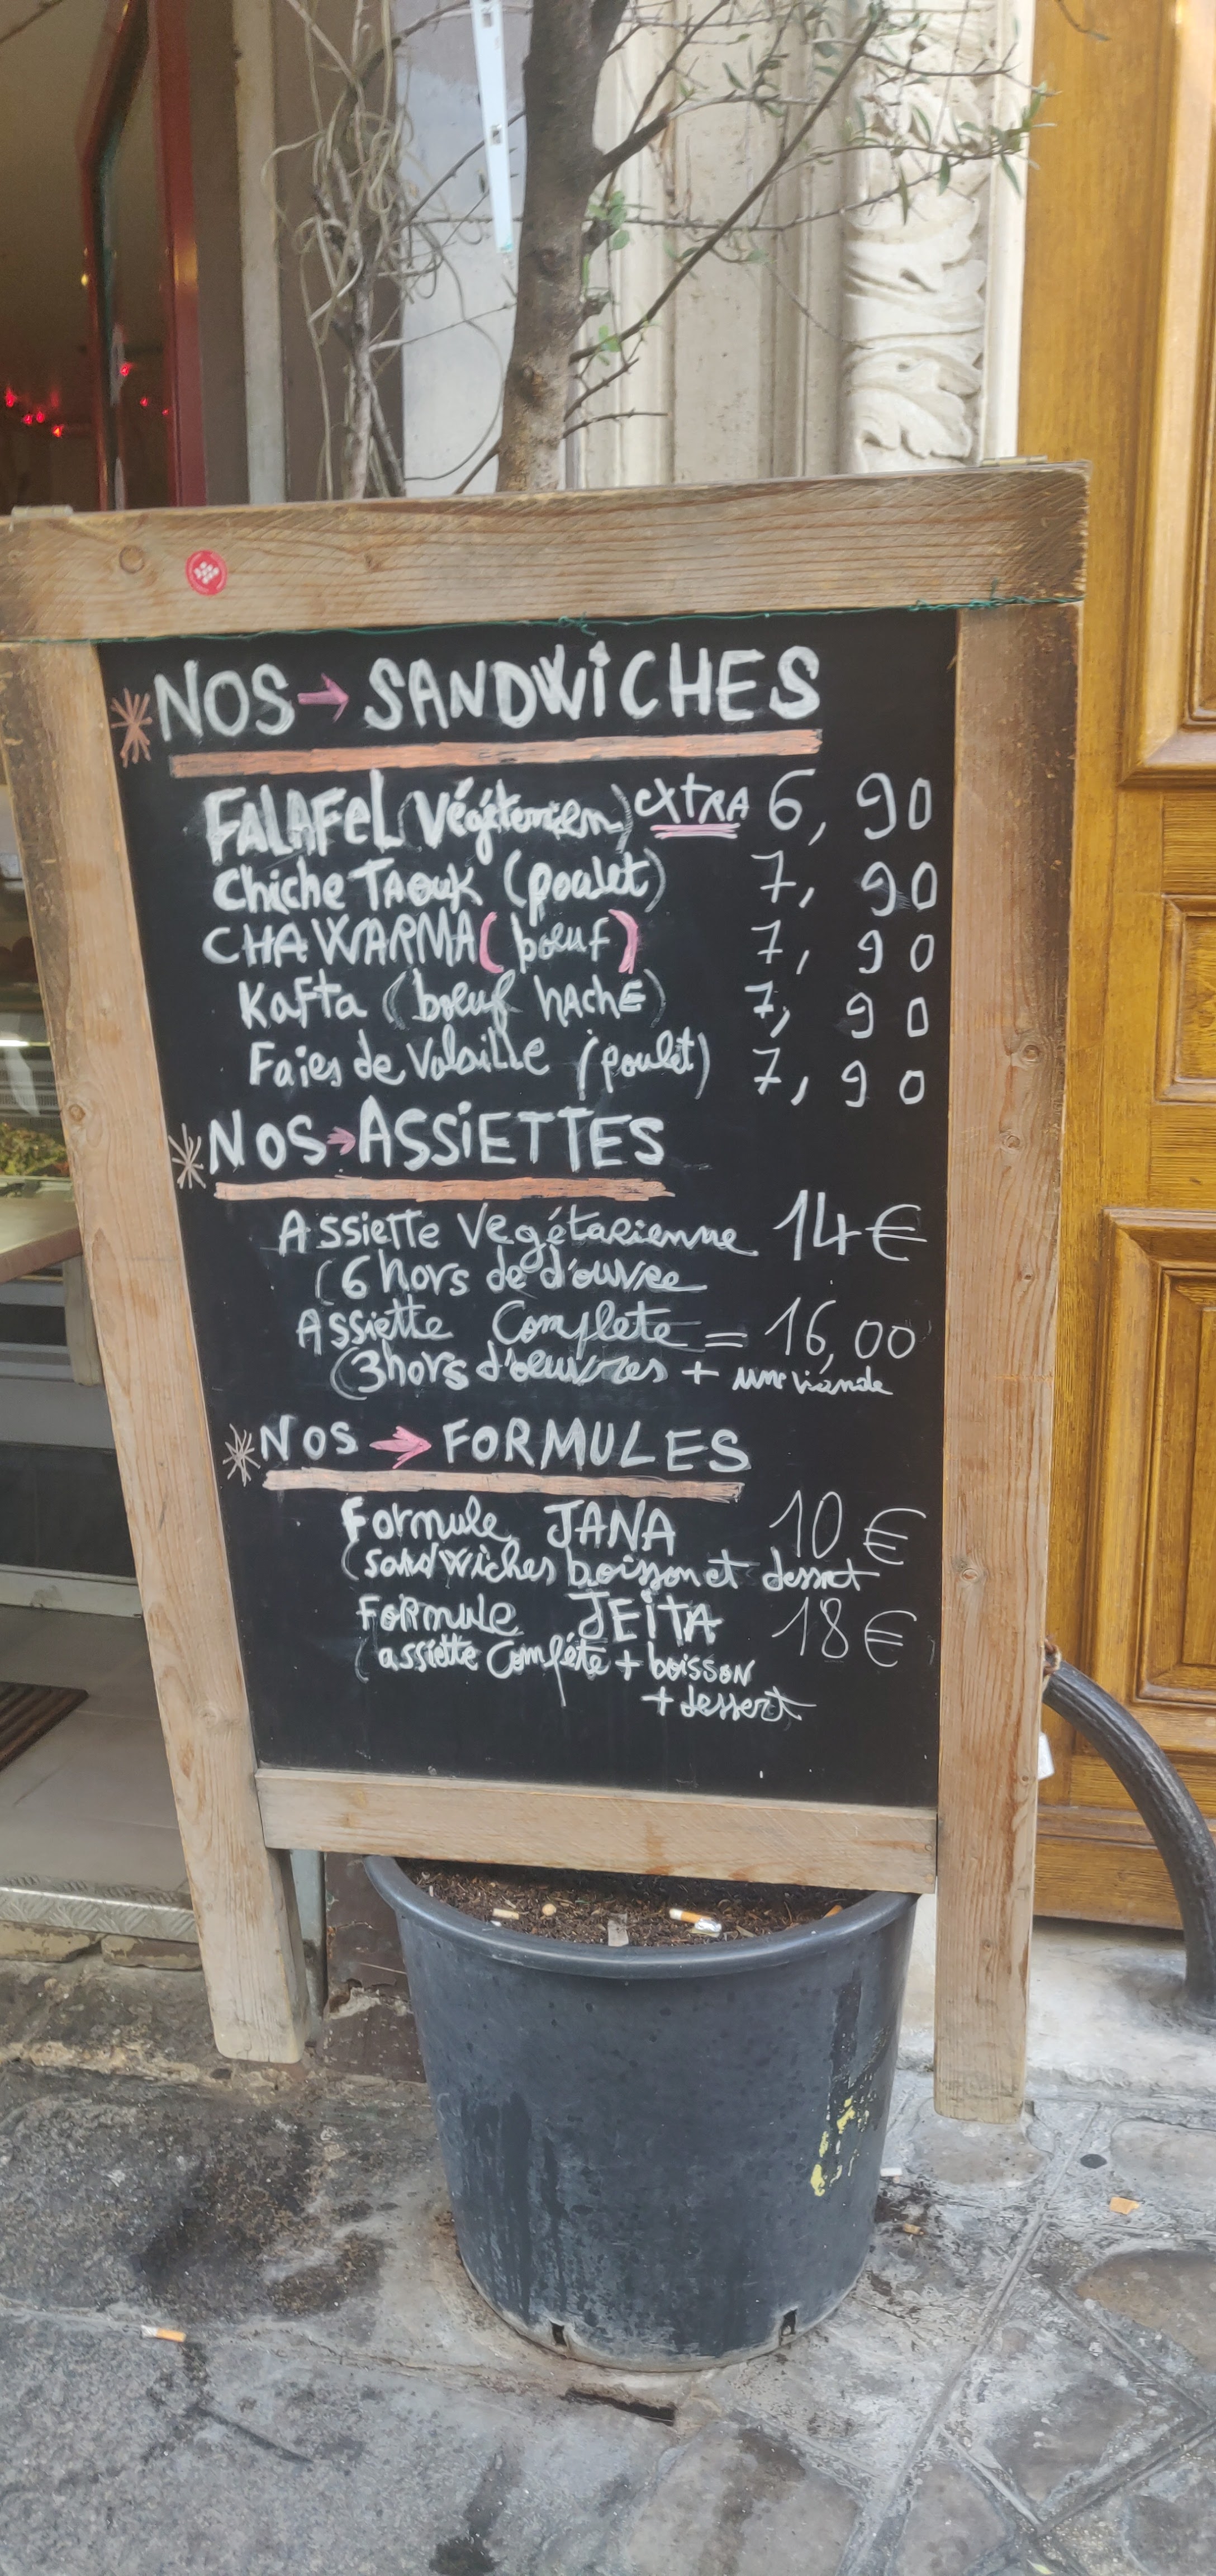 NOS → SANDWiCHES
FALAFEL (végéterien) extRA 6,90
Chiche TAOUK (poulet) 7,90
CHAWARMA (bœuf) 7,90
Kafta (bœuf hAchE) 7,90
Faies de Volaille (poulet) 7,90
NOS → ASSiETTES
Assiette Vegétarienne 14€
(6 hors de d'ouvre
Assiette Complete = 16,00
(3hors d'oeuvres + une viande
NOS → FORMULES
Formule JANA 10€
(sandwiches boisson et dessert
Formule JEiTA 18€
(assiette Compléte + boisson
+ dessert